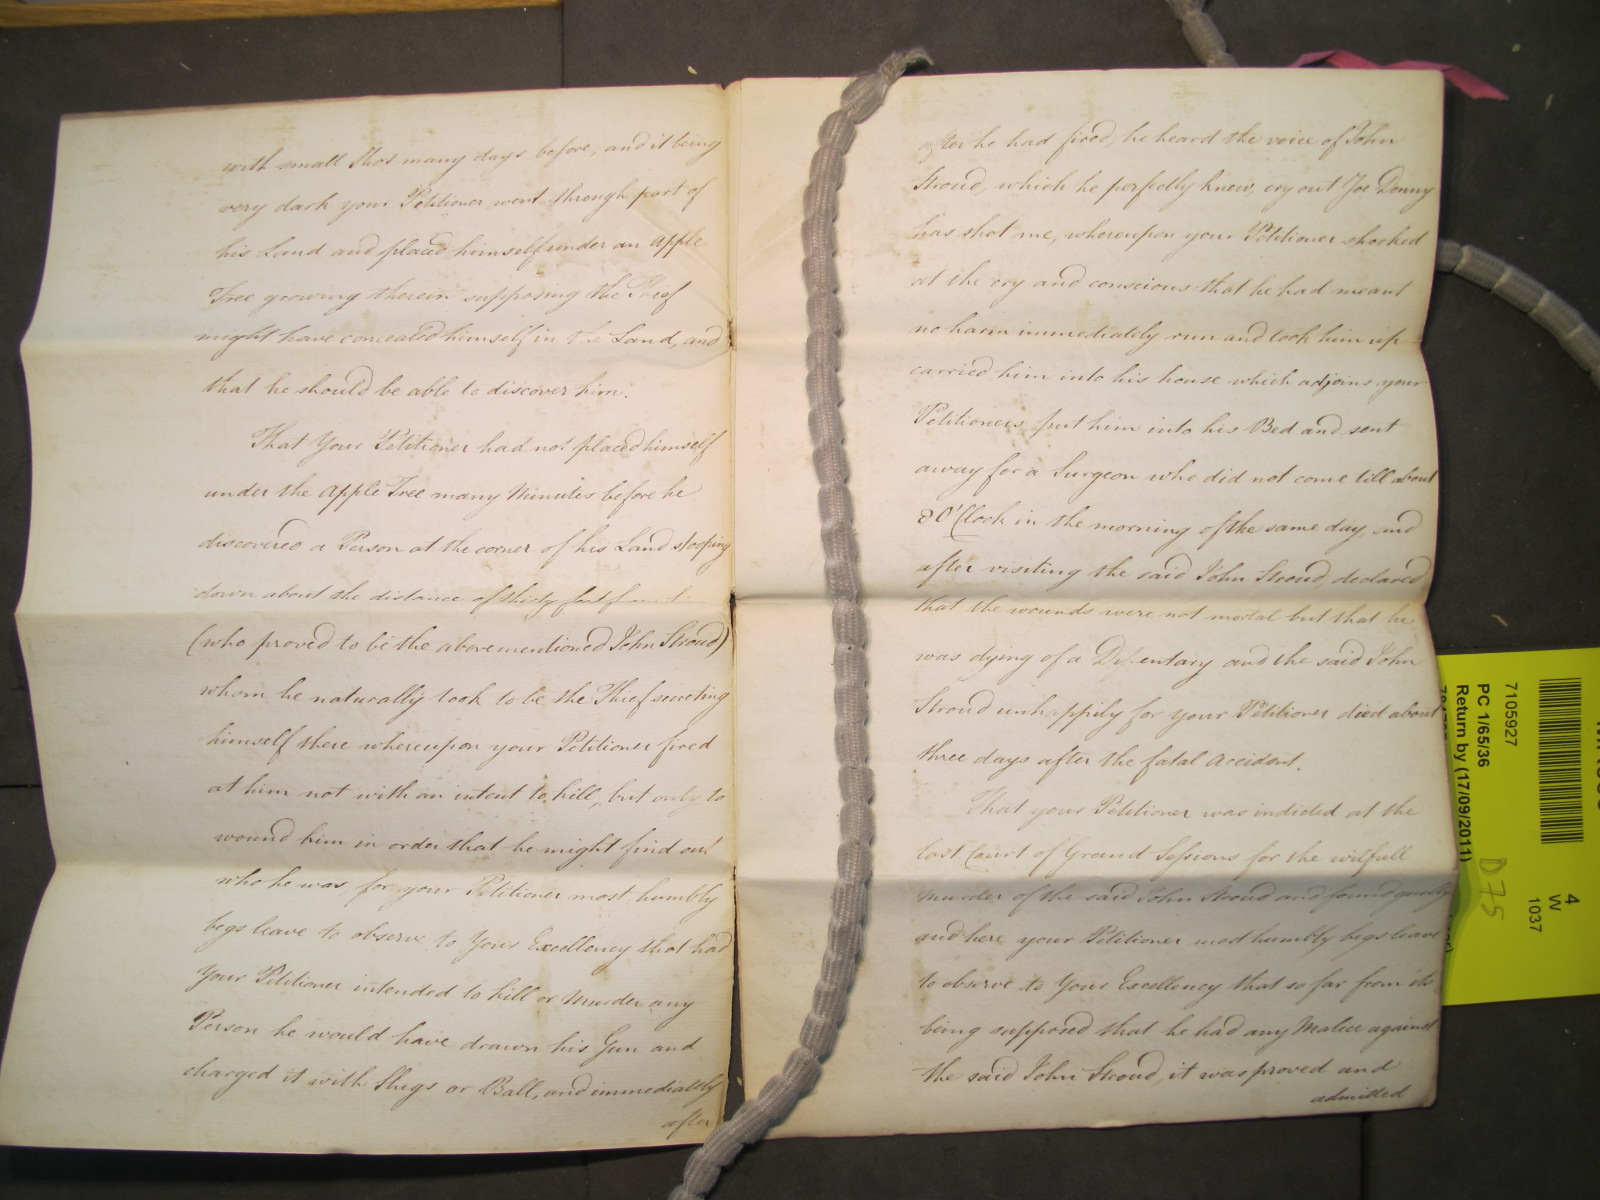 with small Shot many days before, and it being
very dark your Petitioner went through part of
his Land and placed himself under an apple
Tree growing therein supposing the Thief
might have concealed himself in the Land, and
that he should be able to discover him.
That Your Petitioner had not placed himself
under the Apple Tree many Minutes before he
discovered a Person at the corner of his Land stooping
down about the distance of thirty feet from
(who proved to be the abovementioned John Stroud)
whom he naturally took to be the Thief secreting
himself there whereupon your Petitioner fired
at him not with an intent to kill, but only to
wound him in order that he might find out
who he was, for your Petitioner most humbly
begs leave to observe to Your Excellency that had
Your Petitioner intended to kill or Murder any
Person he would have drawn his Gun and
charged it with Slugs or Ball, and immediately
after
after he had fired, he heard the voice of John
Stroud, which he perfectly knew, cry out Joe Denny
has shot me, whereupon your Petitioner shocked
at the cry and conscious that he had meant
no harm immediately run and took him up
carried him into his house which adjoins your
Petitioners put him into his Bed and sent
away for a Surgeon who did not come till about
8 O'Clock in the morning of the same day, and
after visiting the said John Stroud, declared
that the wounds were not mortal but that he
was dying of a Dysentary and the said John
Stroud unhappily for your Petitioner died about
three days after the fatal Accident.
That your Petitioner was indicted at the
last Court of Grand Sessions for the wilfull
Murder of the said John Stroud and found guilty
and here your Petitioner most humbly begs leave
to observe to Your Excellency that so far from its
being supposed that he had any Malice against
the said John Stroud, it was proved and
admitted
7105927
PC 1/65/36
Return by (17/09/2011)
D75
4
W
1037